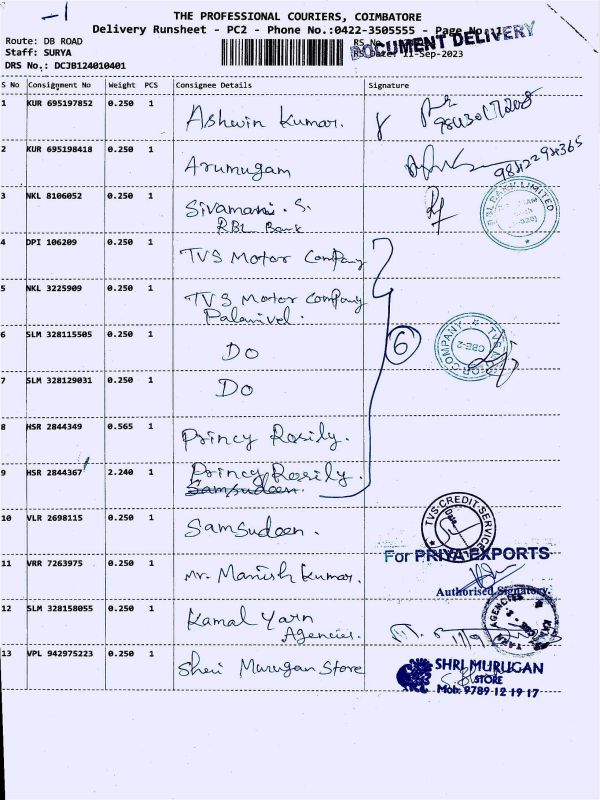 -1
THE PROFESSIONAL COURIERS, COIMBATORE
Delivery Runsheet - PC2 - Phone No.:0422-3505555 - Page No.:1
DOCUMENT DELIVERY
Route: DB ROAD
RS No.
Staff: SURYA
RS Date: 11-Sep-2023
DRS No.: DCJB124010401
S No Consignment No Weight PCS Consignee Details Signature
1 KUR 695197852 0.250 1 Ashwin Kumar.
2 KUR 695198418 0.250 1 Arumugam
3 NKL 8106052 0.250 1 Sivamani . S.
RBL Bank
RBL BANK LIMITED
4 DPI 106209 0.250 1 TVS Motor Company
5 NKL 3225909 0.250 1 TVS Motor Company
Palanivel.
6 SLM 328115505 0.250 1 DO
6
TVS MOTOR COMPANY
CBE-2
7 SLM 328129031 0.250 1 DO
8 HSR 2844349 0.565 1 Princy Rosily.
9 HSR 2844367 2.240 1 Princy Rosily.
Samsudeen.
10 VLR 2698115 0.250 1 Samsudeen.
TVS CREDIT SERVICE
11 VRR 7263975 0.250 1 Mr. Manish Kumar.
For PRIYA EXPORTS
Authorised Signatory
12 SLM 328158055 0.250 1 Kamal Yarn
Agencies.
KAMAL YARN AGENCIES
13 VPL 942975223 0.250 1 Shri Murugan Store
SHRI MURUGAN
STORE
Mob: 9789 12 19 17